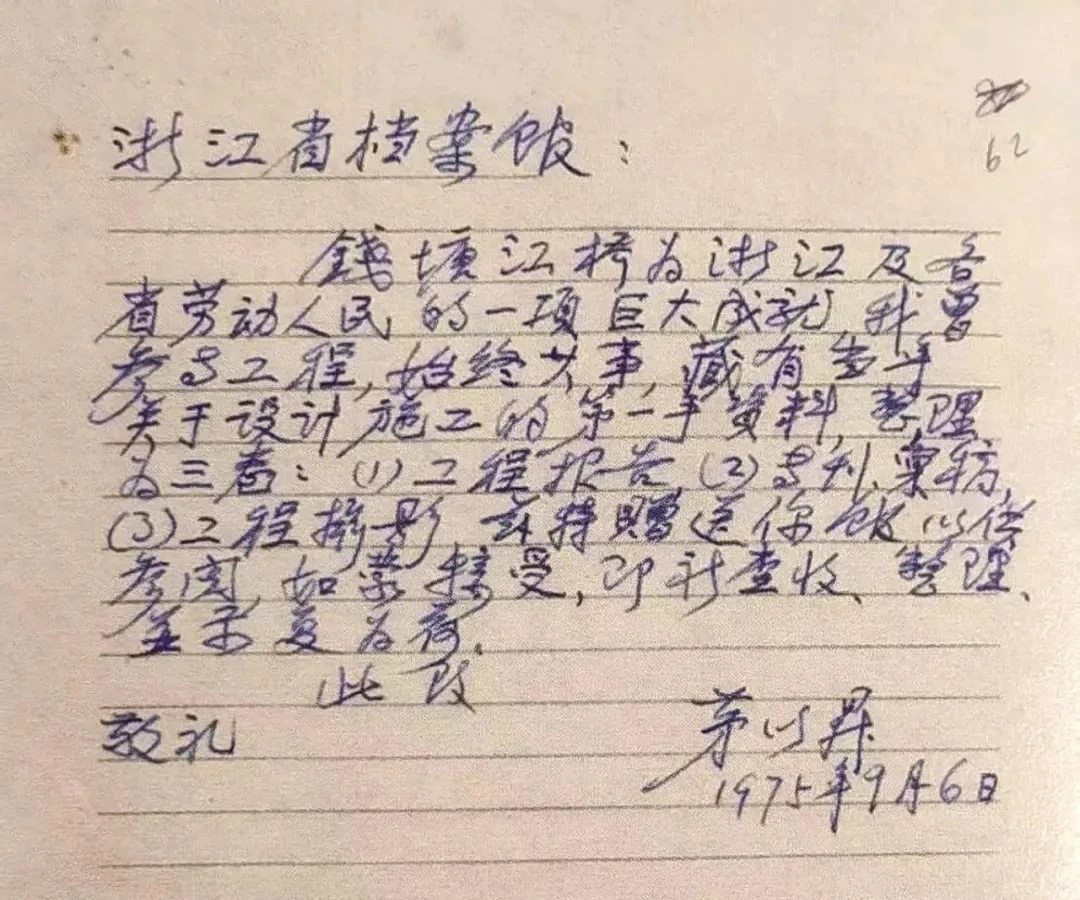 62
浙江省档案馆：
錢塘江桥为浙江及各
省劳动人民的一项巨大成就，我曾
参与工程，始终其事，藏有当年
关于设计施工的第一手資料，整理
为三卷：(1)工程报告，(2)专刊、彙稿，
(3)工程摄影，兹特赠送你馆以供
参阅，如蒙接受，即祈查收、整理、
並示复为荷。
此致
敬礼
茅以昇
1975年9月6日